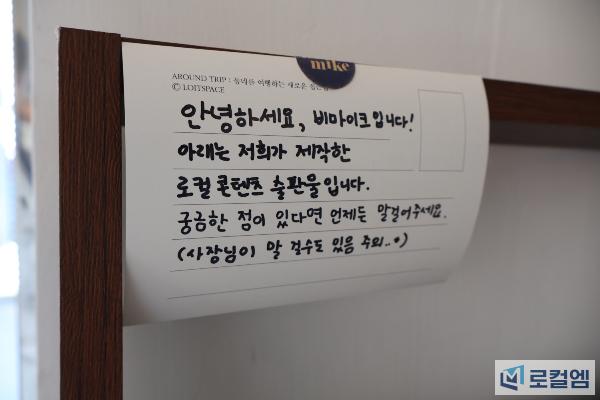 mike
AROUND TRIP : 동네를 여행하는 새로운
© LOITSPACE
안녕하세요, 비마이크입니다!
아래는 저희가 제작한
로컬 콘텐츠 출판물입니다.
궁금한 점이 있다면 언제든 말걸어주세요.
(사장님이 말 걸수도 있음 주의..•)
로컬엠